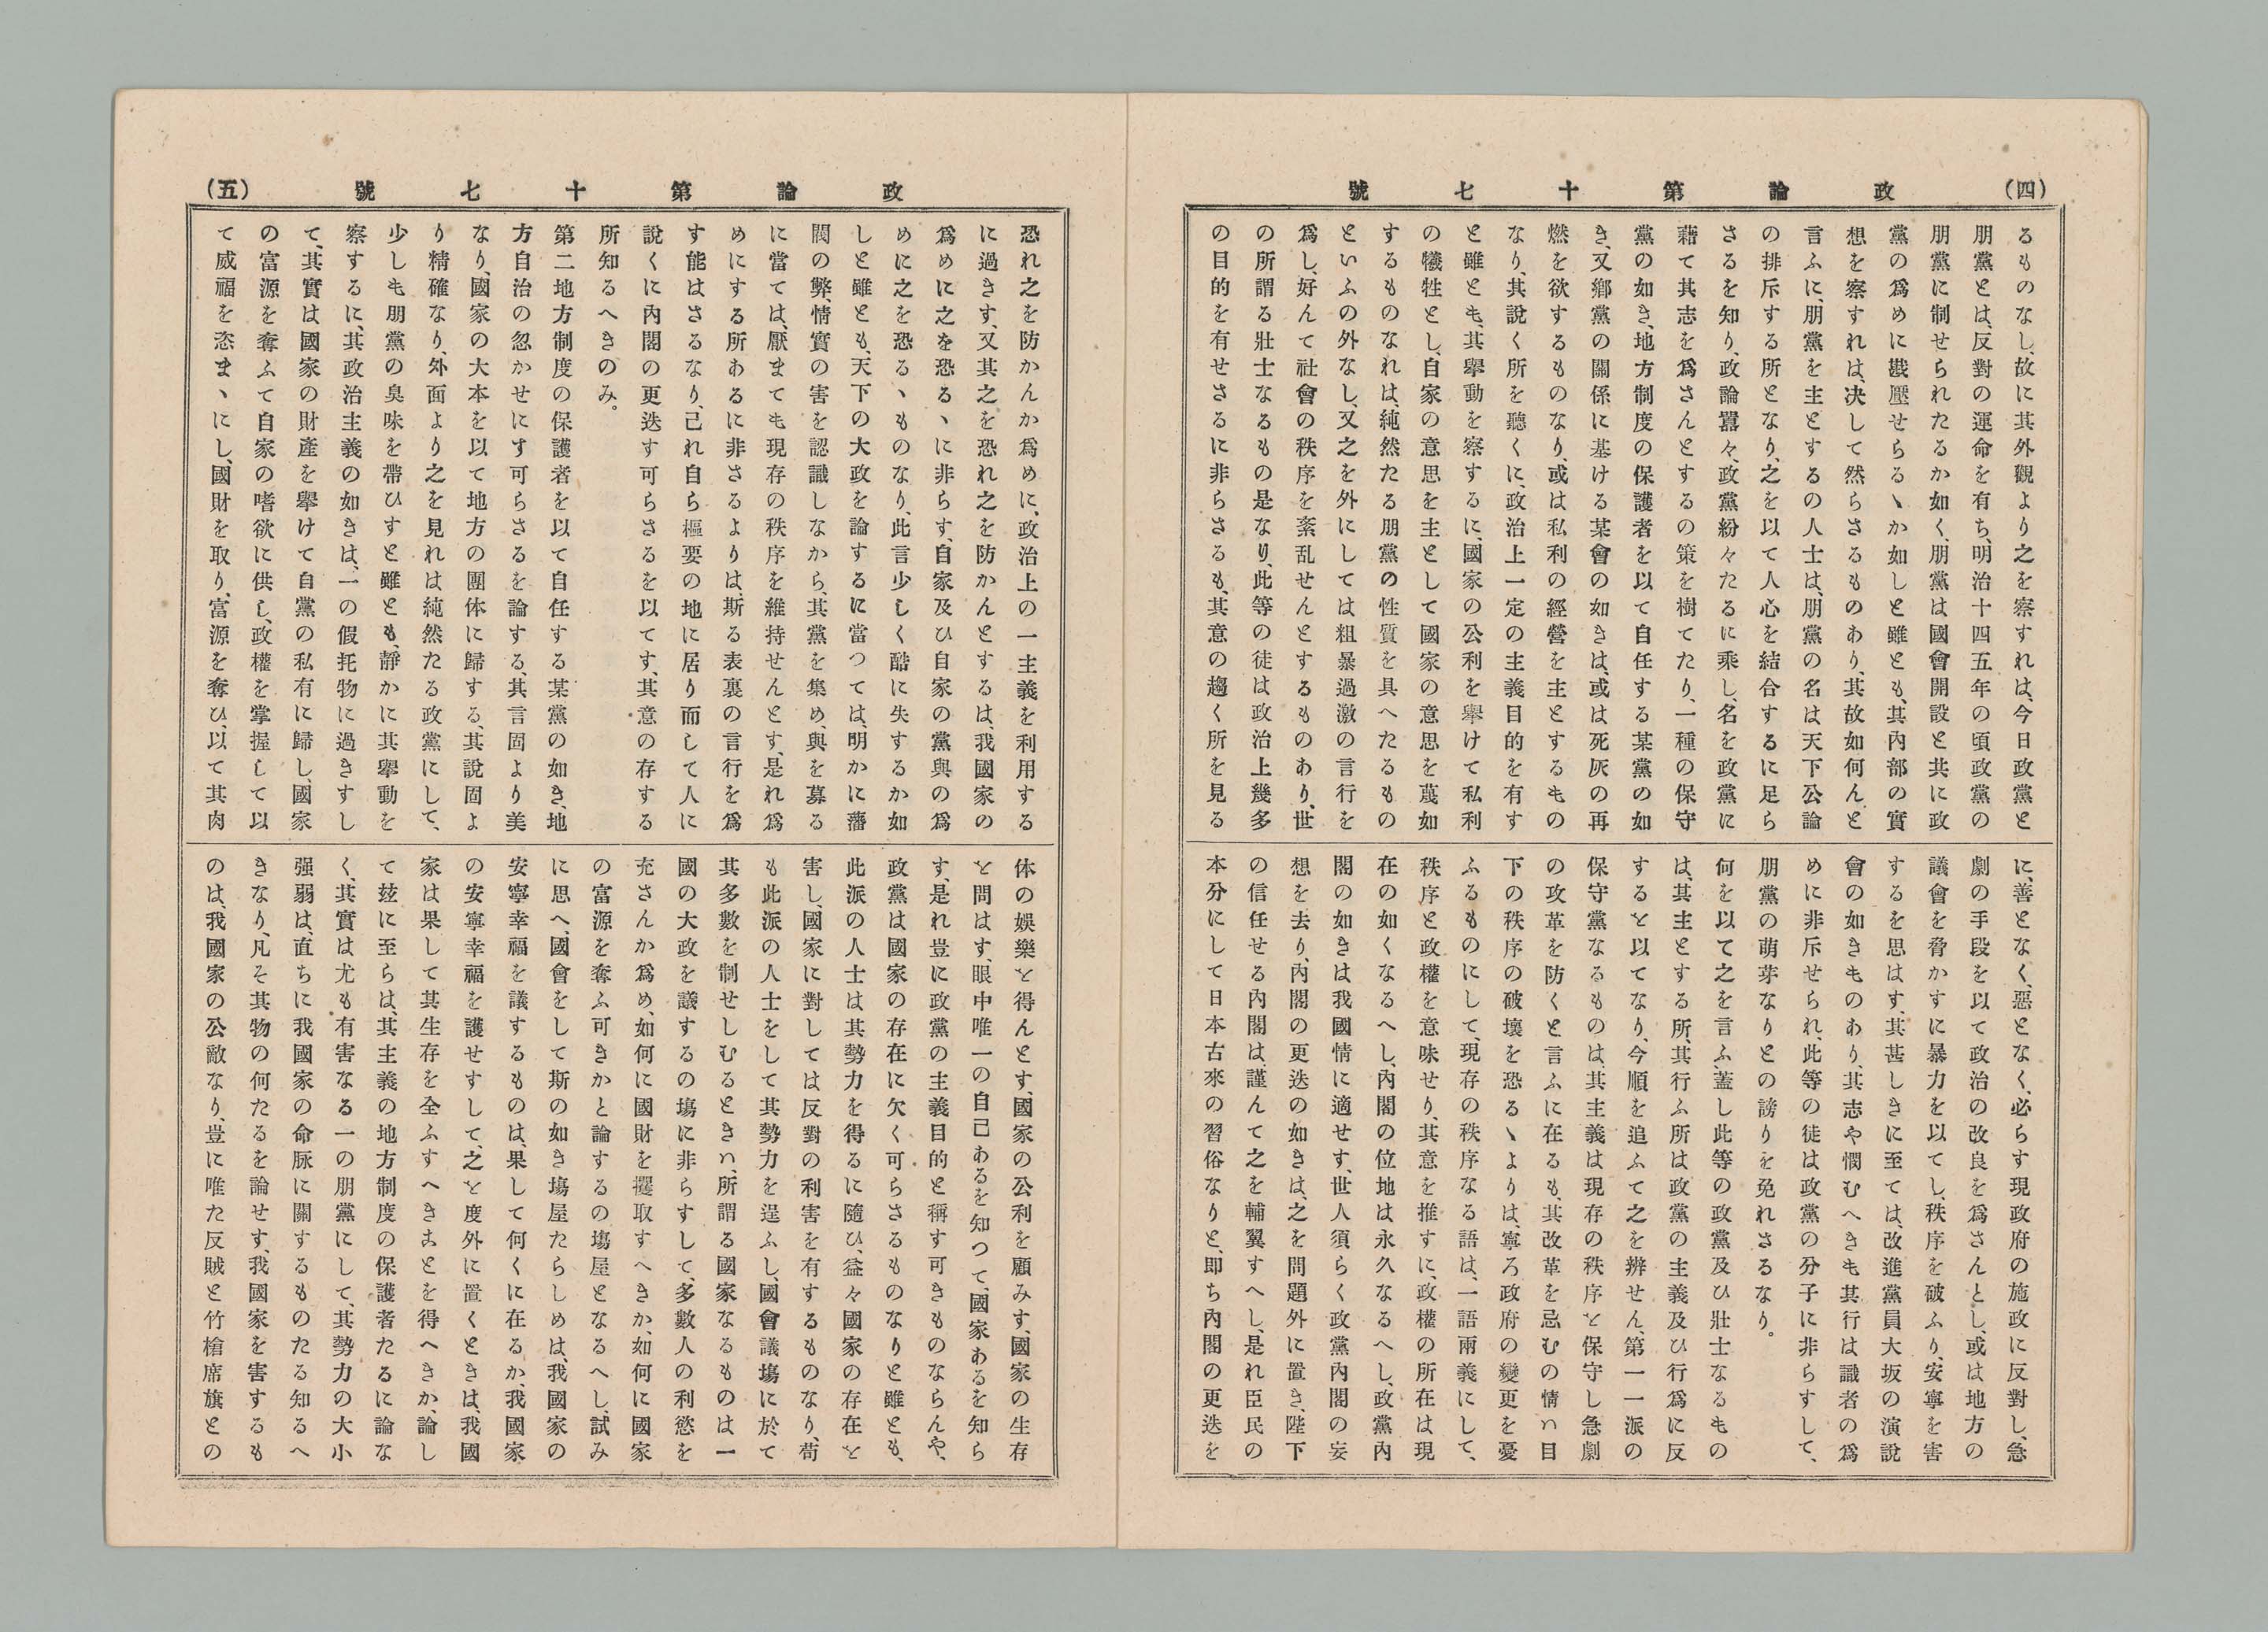 (四)
政論第十七號
るものなし、故に其外觀より之を察すれは、今日政黨と
朋黨とは、反對の運命を有ち、明治十四五年の頃政黨の
朋黨に制せられたるか如く、朋黨は國會開設と共に政
黨の爲めに戡壓せらるゝか如しと雖とも、其內部の實
想を察すれは、决して然らさるものあり、其故如何んと
言ふに、朋黨を主とするの人士は、朋黨の名は天下公論
の排斥する所となり、之を以て人心を結合するに足ら
さるを知り、政論囂々、政黨紛々たるに乘し、名を政黨に
藉て其志を爲さんとするの策を樹てたり、一種の保守
黨の如き、地方制度の保護者を以て自任する某黨の如
き、又鄉黨の關係に基ける某會の如きは、或は死灰の再
燃を欲するものなり、或は私利の經營を主とするもの
なり、其說く所を聽くに、政治上一定の主義目的を有す
と雖とも、其擧動を察するに、國家の公利を擧けて私利
の犧牲とし、自家の意思を主として國家の意思を蔑如
するものなれは、純然たる朋黨の性質を具へたるもの
といふの外なし、又之を外にしては粗暴過激の言行を
爲し、好んて社會の秩序を紊乱せんとするものあり、世
の所謂る壯士なるもの是なり、此等の徒は政治上幾多
の目的を有せさるに非らさるも、其意の趨く所を見る
に、善となく、惡となく、必らす現政府の施政に反對し、急
劇の手段を以て政治の改良を爲さんとし、或は地方の
議會を脅かすに暴力を以てし、秩序を破ふり、安寧を害
するを思はす、其甚しきに至ては、改進黨員大坂の演說
會の如きものあり、其志や憫むへきも其行は識者の爲
めに非斥せられ、此等の徒は政黨の分子に非らすして、
朋黨の萌芽なりとの謗りを免れさるなり。
何を以て之を言ふ、蓋し此等の政黨及ひ壯士なるもの
は、其主とする所、其行ふ所は政黨の主義及ひ行爲に反
するを以てなり、今順を追ふて之を辨せん、第一一派の
保守黨なるものは、其主義は現存の秩序を保守し急劇
の改革を防くと言ふに在るも、其改革を忌むの情ハ目
下の秩序の破壞を恐るゝよりは、寧ろ政府の變更を憂
ふるものにして、現存の秩序なる語は、一語兩義にして、
秩序と政權を意味せり、其意を推すに、政權の所在は現
在の如くなるへし、內閣の位地は永久なるへし、政黨內
閣の如きは我國情に適せす、世人須らく政黨內閣の妄
想を去り、內閣の更迭の如きは、之を問題外に置き、陛下
の信任せる內閣は、謹んて之を輔翼すへし、是れ臣民の
本分にして日本古來の習俗なりと、即ち內閣の更迭を
(五)
政論第十七號
恐れ之を防かんか爲めに、政治上の一主義を利用する
に過きす、又其之を恐れ之を防かんとするは、我國家の
爲めに之を恐るゝに非らす、自家及ひ自家の黨與の爲
めに之を恐るゝものなり、此言少しく酷に失するか如
しと雖とも、天下の大政を論するに當つては、明かに藩
閥の弊、情實の害を認識しなから、其黨を集め、與を募る
に當ては、厭まても現存の秩序を維持せんとす、是れ爲
めにする所あるに非さるよりは、斯る表裏の言行を爲
す能はさるなり、己れ自ら樞要の地に居り而して人に
說くに內閣の更迭す可らさるを以てす、其意の存する
所知るへきのみ。
第二地方制度の保護者を以て自任する某黨の如き、地
方自治の忽かせにす可らさるを論する、其言固より美
なり、國家の大本を以て地方の團体に歸する、其說固よ
り精確なり、外面より之を見れは純然たる政黨にして、
少しも朋黨の臭味を帶ひすと雖とも、靜かに其擧動を
察するに、其政治主義の如きは、一の假托物に過きすし
て、其實は國家の財產を擧けて自黨の私有に歸し、國家
の富源を奪ふて自家の嗜欲に供し、政權を掌握して以
て威福を恣まゝにし、國財を取り、富源を奪ひ、以て其肉
体の娛樂を得んとす、國家の公利を顧みす、國家の生存
を問はす、眼中唯一の自己あるを知つて、國家あるを知ら
す、是れ豈に政黨の主義目的と稱す可きものならんや、
政黨は國家の存在に欠く可らさるものなりと雖とも、
此派の人士は其勢力を得るに隨ひ、益々國家の存在を
害し、國家に對しては反對の利害を有するものなり、苟
も此派の人士をして其勢力を逞ふし、國會議塲に於て
其多數を制せしむるときハ、所謂る國家なるものは一
國の大政を議するの塲に非らすして、多數人の利慾を
充さんか爲め、如何に國財を攫取すへきか、如何に國家
の富源を奪ふ可きかと論するの塲屋となるへし、試み
に思へ、國會をして斯の如き塲屋たらしめは、我國家の
安寧幸福を議するものは、果して何くに在るか、我國家
の安寧幸福を護せすして、之を度外に置くときは、我國
家は果して其生存を全ふすへきことを得へきか、論し
て玆に至らは、其主義の地方制度の保護者たるに論な
く、其實は尤も有害なる一の朋黨にして、其勢力の大小
强弱は、直ちに我國家の命脉に關するものたる知るへ
きなり、凡そ其物の何たるを論せす、我國家を害するも
のは、我國家の公敵なり、豈に唯た反賊と竹槍席旗との